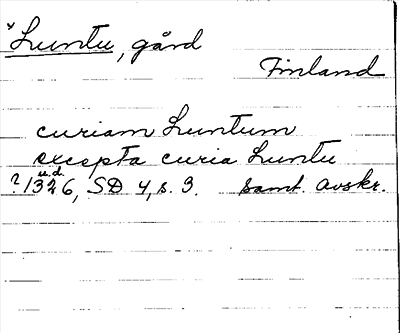 *Luntu, gård
Finland
curiam Luntum
excepta curia Luntu
u.d.
?/1326, SD 4, s. 3. samt. avskr.